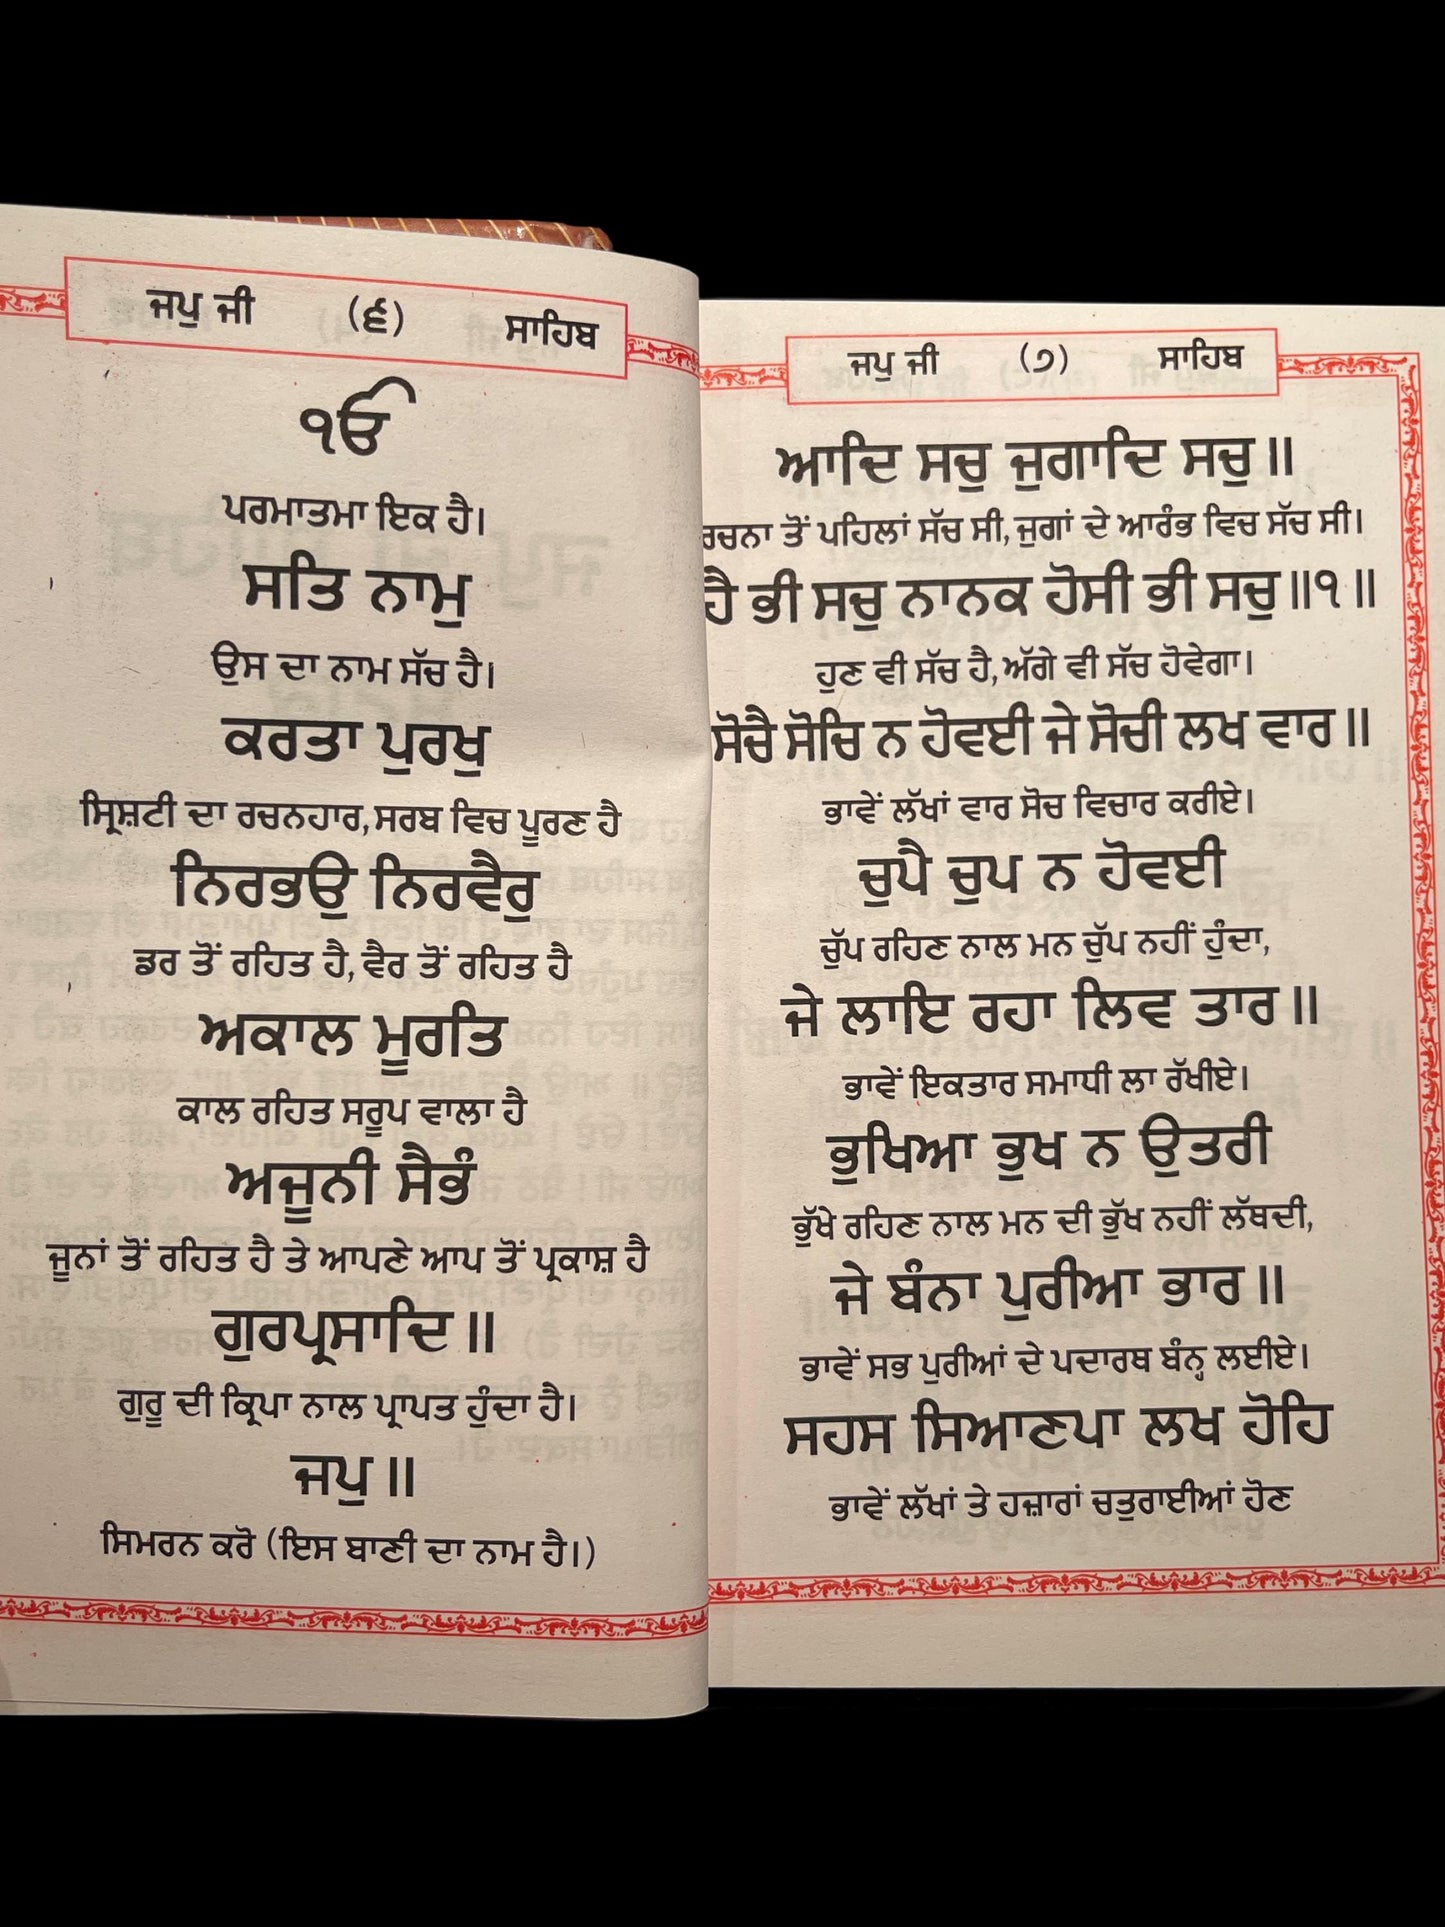 ਜਪੁ ਜੀ (੬) ਸਾਹਿਬ
ੴ
ਪਰਮਾਤਮਾ ਇਕ ਹੈ।
ਸਤਿ ਨਾਮੁ
ਉਸ ਦਾ ਨਾਮ ਸੱਚ ਹੈ।
ਕਰਤਾ ਪੁਰਖੁ
ਸ੍ਰਿਸ਼ਟੀ ਦਾ ਰਚਨਹਾਰ, ਸਰਬ ਵਿਚ ਪੂਰਣ ਹੈ
ਨਿਰਭਉ ਨਿਰਵੈਰੁ
ਡਰ ਤੋਂ ਰਹਿਤ ਹੈ, ਵੈਰ ਤੋਂ ਰਹਿਤ ਹੈ
ਅਕਾਲ ਮੂਰਤਿ
ਕਾਲ ਰਹਿਤ ਸਰੂਪ ਵਾਲਾ ਹੈ
ਅਜੂਨੀ ਸੈਭੰ
ਜੂਨਾਂ ਤੋਂ ਰਹਿਤ ਹੈ ਤੇ ਆਪਣੇ ਆਪ ਤੋਂ ਪ੍ਰਕਾਸ਼ ਹੈ
ਗੁਰਪ੍ਰਸਾਦਿ ॥
ਗੁਰੂ ਦੀ ਕ੍ਰਿਪਾ ਨਾਲ ਪ੍ਰਾਪਤ ਹੁੰਦਾ ਹੈ।
ਜਪੁ ॥
ਸਿਮਰਨ ਕਰੋ (ਇਸ ਬਾਣੀ ਦਾ ਨਾਮ ਹੈ।)
ਜਪੁ ਜੀ (੭) ਸਾਹਿਬ
ਆਦਿ ਸਚੁ ਜੁਗਾਦਿ ਸਚੁ ॥
ਰਚਨਾ ਤੋਂ ਪਹਿਲਾਂ ਸੱਚ ਸੀ, ਜੁਗਾਂ ਦੇ ਆਰੰਭ ਵਿਚ ਸੱਚ ਸੀ।
ਹੈ ਭੀ ਸਚੁ ਨਾਨਕ ਹੋਸੀ ਭੀ ਸਚੁ ॥੧॥
ਹੁਣ ਵੀ ਸੱਚ ਹੈ, ਅੱਗੇ ਵੀ ਸੱਚ ਹੋਵੇਗਾ।
ਸੋਚੈ ਸੋਚਿ ਨ ਹੋਵਈ ਜੇ ਸੋਚੀ ਲਖ ਵਾਰ ॥
ਭਾਵੇਂ ਲੱਖਾਂ ਵਾਰ ਸੋਚ ਵਿਚਾਰ ਕਰੀਏ।
ਚੁਪੈ ਚੁਪ ਨ ਹੋਵਈ
ਚੁੱਪ ਰਹਿਣ ਨਾਲ ਮਨ ਚੁੱਪ ਨਹੀਂ ਹੁੰਦਾ,
ਜੇ ਲਾਇ ਰਹਾ ਲਿਵ ਤਾਰ ॥
ਭਾਵੇਂ ਇਕਤਾਰ ਸਮਾਧੀ ਲਾ ਰੱਖੀਏ।
ਭੁਖਿਆ ਭੁਖ ਨ ਉਤਰੀ
ਭੁੱਖੇ ਰਹਿਣ ਨਾਲ ਮਨ ਦੀ ਭੁੱਖ ਨਹੀਂ ਲੱਥਦੀ,
ਜੇ ਬੰਨਾ ਪੁਰੀਆ ਭਾਰ ॥
ਭਾਵੇਂ ਸਭ ਪੁਰੀਆਂ ਦੇ ਪਦਾਰਥ ਬੰਨ੍ਹ ਲਈਏ।
ਸਹਸ ਸਿਆਣਪਾ ਲਖ ਹੋਹਿ
ਭਾਵੇਂ ਲੱਖਾਂ ਤੇ ਹਜ਼ਾਰਾਂ ਚਤੁਰਾਈਆਂ ਹੋਣ